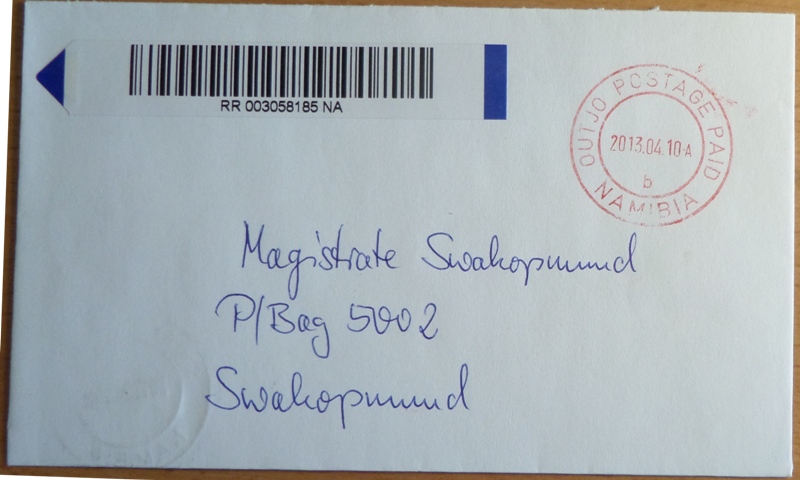 RR 003058185 NA
OUTJO POSTAGE PAID
2013.04.10-A
b
NAMIBIA
Magistrate Swakopmund
P/Bag 5002
Swakopmund